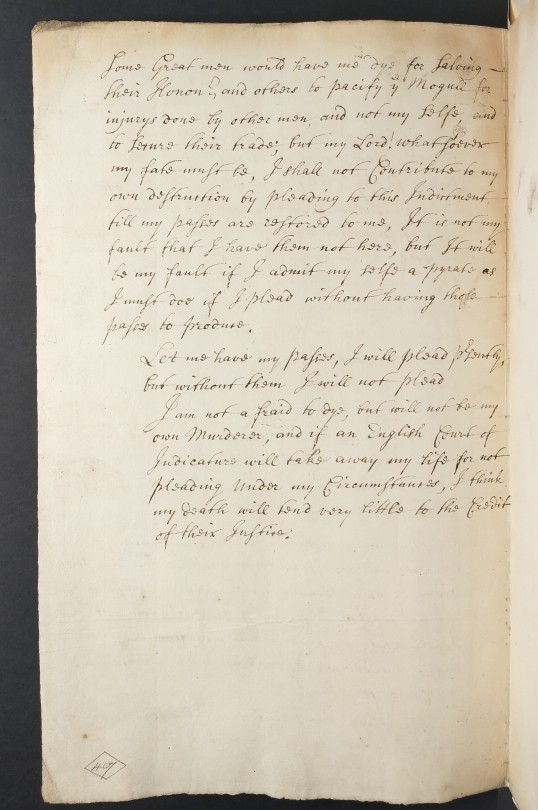 Some Great men would have me dye for Salving
their Honor:, and others to pacify ye Mogull for
injurys done by other men, and not my selfe, and
to secure their trade; but my Lord! whatsoever
my fate must be, I shall not Contribute to my
own destruction by pleading to this Indictment
till my passes are restored to me, It is not my
fault that I have them not here, but It will
be my fault if I admit my selfe a pyrate as
I must doe if I plead without having those
passes to produce.
Let me have my passes, I will plead p'sently,
but without them I will not plead
I am not afraid to dye, but will not be my
own Murderer, and if an English Court of
Judicature will take away my life for not
pleading under my Circumstances, I think
my death will tend very little to the Credit
of their Justice.